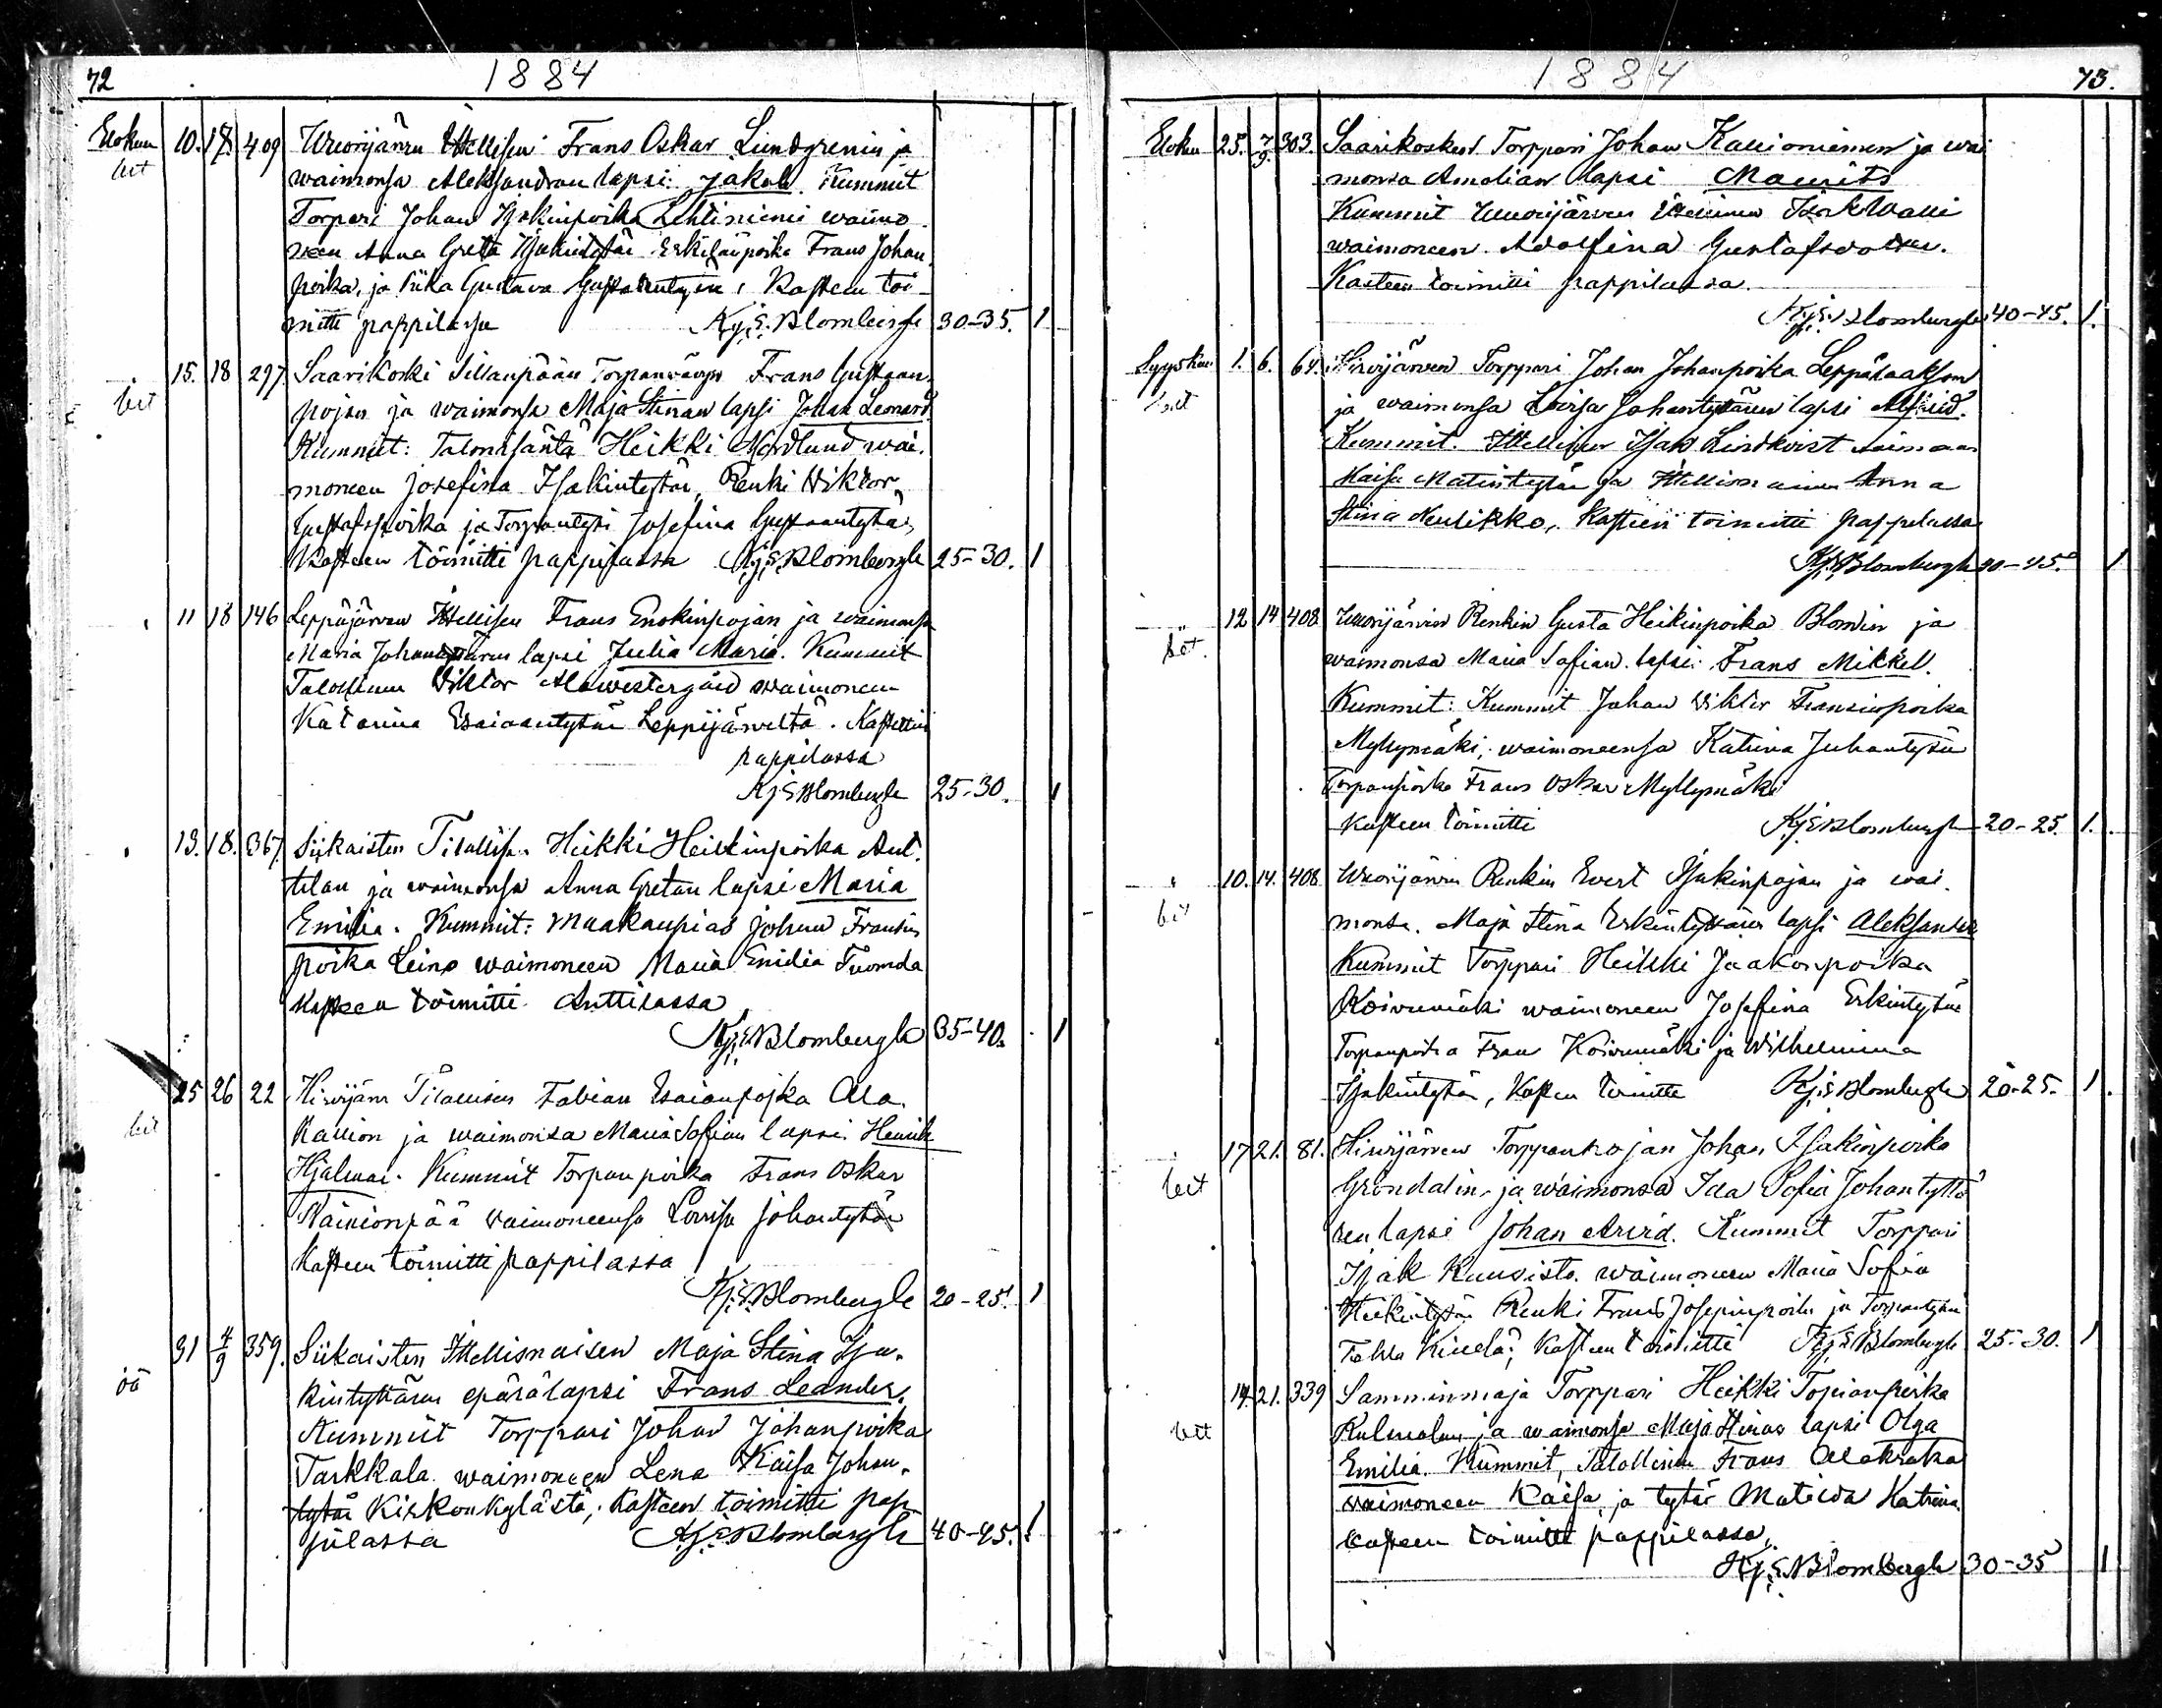 72
1884
Elokuu 10. 17. 409 Wuorijärven Ittellisen Frans Oskar Lundgrenin ja
bet waimonsa Aleksandran lapsi: Jakob. Kummit
Torpari Johan Isakinpoika Lehtiniemi waimo
neen Anna Greta Isakintytär Erkilänpoika Frans Johan
poika, ja Fiika Gustava Kasteen toi
mitti pappilassa Kj. E. Blombergh 30-35. 1
15. 18 297 Saarikoski Sillanpään Torpanvävyn Frans Gustaan
bet pojan ja waimonsa Maja Stinan lapsi Johan Leonard
Kummit: Talonisäntä Heikki Nordlund wai
moneen Josefina Isakintytär, Renki Viktor
Gustafspoika ja Torpantytär Josefina Gustaantytär,
Kasteen toimitti pappilassa Kj. E. Blombergh 25-30. 1
" 11 18 146 Leppäjärven Ittellisen Frans Enokinpojan ja waimonsa
Maria Johantyttären lapsi Julia Maria. Kummit
Talollinen Viktor Alawestergård waimoneen
Katarina Esaiaantytär Leppijärveltä. Kastettiin
pappilassa
Kj E Blombergh 25-30. 1
" 13. 18. 367. Siikaisten Tilallisen Heikki Heikinpoika Ant
tilan ja waimonsa Anna Gretan lapsi Maria
Emilia. Kummit: Maakaupias Johan Fransin
poika Leino waimoneen Maria Emilia Tuomola
Kasteen toimitti Anttilassa
Kj. E. Blombergh 35-40. 1
25 26 22 Hirvijärvi Tilallisen Fabian Esaianpojka Ala
bet Kallion ja waimonsa Maria Sofian lapsi Henrik
Hjalmar. Kummit Torpanpoika Frans Oskar
waimoneensa Lovisa Johantytär
Kasteen toimitti pappilassa
Kj. E. Blombergh 20-25. 1
31 4/9 359. Siikaisten Ittellisnaisen Maja Stina Isa
öä kintyttären epärälapsi Frans Leander.
Kummit Torppari Johan Johanpoika
Tarkkala waimoneen Lena Kaisa Johan
tytär Kirkonkylästä; Kasteen toimitti pap
pilassa Kj. E. Blombergh 40-45. 1
1884
73.
Elokuu 25. 7/9 303. Saarikosken Torppari Johan Kallioniemen ja wai
monsa Amalian lapsi Maurits
Kummit Wuorijärven Ittellinen Isak Walli
waimoneen Adolfina Gustafsdotter.
Kasteen toimitti pappilassa.
Kj. E. Blombergh 40-45. 1.
Syyskuu 1. 6. 64. Hirvijärven Torppari Johan Johanpoika Leppälaakson
bet ja waimonsa Lovisa Johantyttären lapsi Alfrid.
Kummit. Ittellinen Isak Lindkvist waimoneen
Kaisa Matintytär ja Ittellisnainen Anna
Stina Neulikko, Kasteen toimitti pappilassa
Kj. E. Blombergh 40-45. 1
" 12 14 408 Wuorijärven Renkin Gusta Heikinpoika Blomin ja
bet. waimonsa Maria Sofian lapsi: Frans Mikkel.
Kummit: Kummit Johan Viktor Fransinpoika
Myllymäki; waimoneensa Katrina Juhantytär
Torpanpoika Frans Oskar Myllymäki
Kasteen toimitti Kj E Blombergh 20-25. 1.
" 10. 14. 408 Wuorijärven Renkin Evert Isakinpojan ja wai
bet monsa. Maja Stina Erkintyttären lapsi Aleksander
Kummit Torppari Heikki Jaakonpoika
Koivumäki waimoneen Josefina Erkintytär
Torpanpoika Frans Koivumäki ja Wilhelmina
Isakintytär, Kasteen toimitti Kj. E. Blombergh 20-25. 1.
" 17 21. 81. Hirvijärven Torppanpojan Johan Isakinpoika
bet Gröndalin ja waimonsa Ida Sofia Johantyttä
ren lapsi Johan Arvid. Kummit Torppari
Isak Kuusisto waimoneen Maria Sofia
Heikintytär Renki Frans Josepinpoika ja Torpantytär
Kasteen toimitti Kj. E. Blombergh 25-30. 1
14. 21. 339 Samminmaja Torppari Heikki Topianpoika
bet Kulmalan ja waimonsa Maja Stinas lapsi Olga
Emilia. Kummit, Talollinen Frans Alakraka
waimoneen Kaisa, ja tytär Matilda Katrina.
Kasteen toimitti pappilassa.
Kj. E. Blombergh 30-35 1